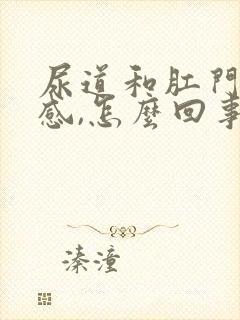 尿道和肛門
感,怎麼回事
溱潼